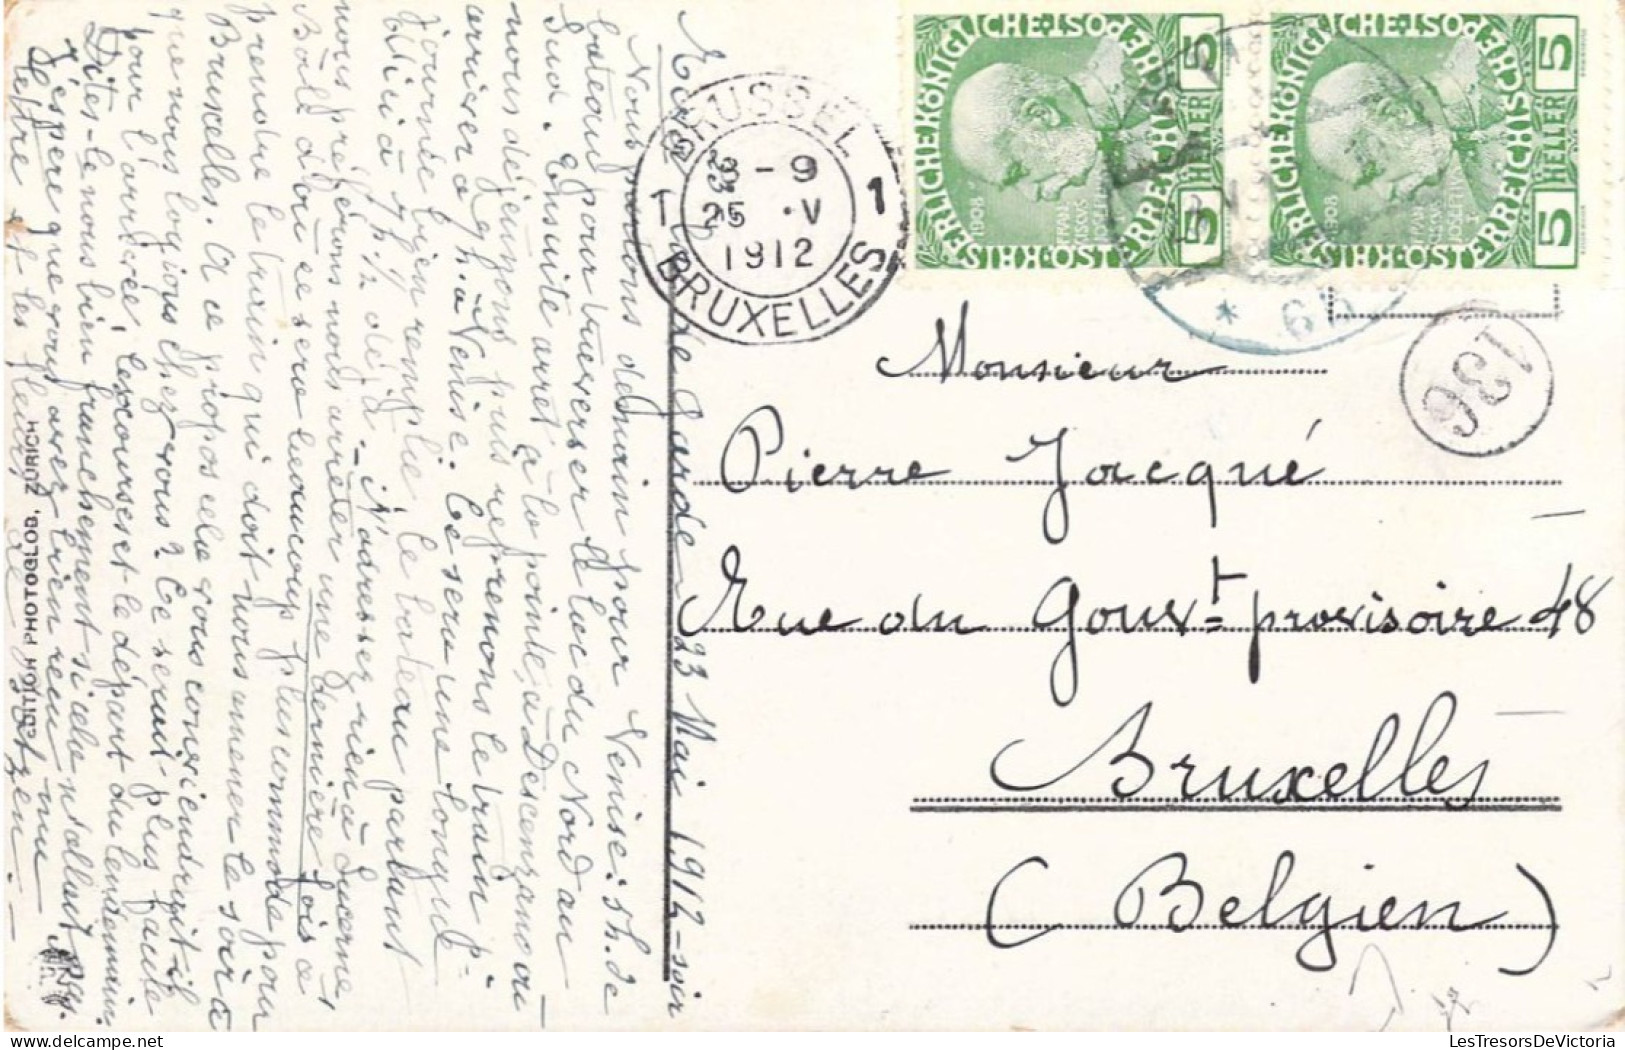 Riva, lac de Garde 23 Mai 1912 - soir
Nous partons demain pour Venise: 5h. de
bateau pour traverser le lac du Nord au
Sud. Ensuite arrêt à la pointe, à Desenzano où
nous déjeunons puis reprenons le train p.
arriver a 9h. à Venise. Ce sera une longue
journée bien remplie, le bateau partant
d'ici à 7h ½ déjà. - N'adressez rien à Lucerne,
nous préférons nous arrêter une dernière fois a
Bâle d'où ce sera beaucoup plus commode pour
prendre le train qui doit nous amener le soir à
Bruxelles. A ce propos cela vous conviendrait-il
que nous logions chez vous? Ce serait plus facile
pour l'arrivée, les courses et le départ du lendemain.
Dites-le nous bien franchement si cela
J'espère que vous avez bien reçu ma
lettre et les fleurs
EDITION PHOTOGLOB, ZÜRICH
BRUSSEL
8-9
25 V
1912
1 1
BRUXELLES
KAISERLICHE KÖNIGLICHE ÖSTERREICHISCHE POST
5 HELLER 5
1908
FRANCISCVS JOSEPH I
KAISERLICHE KÖNIGLICHE ÖSTERREICHISCHE POST
5 HELLER 5
1908
FRANCISCVS JOSEPH I
136
Monsieur
Pierre Jacqué
Rue du Gouvt provisoire 48
Bruxelles
(Belgien)
LesTresorsDeVictoria